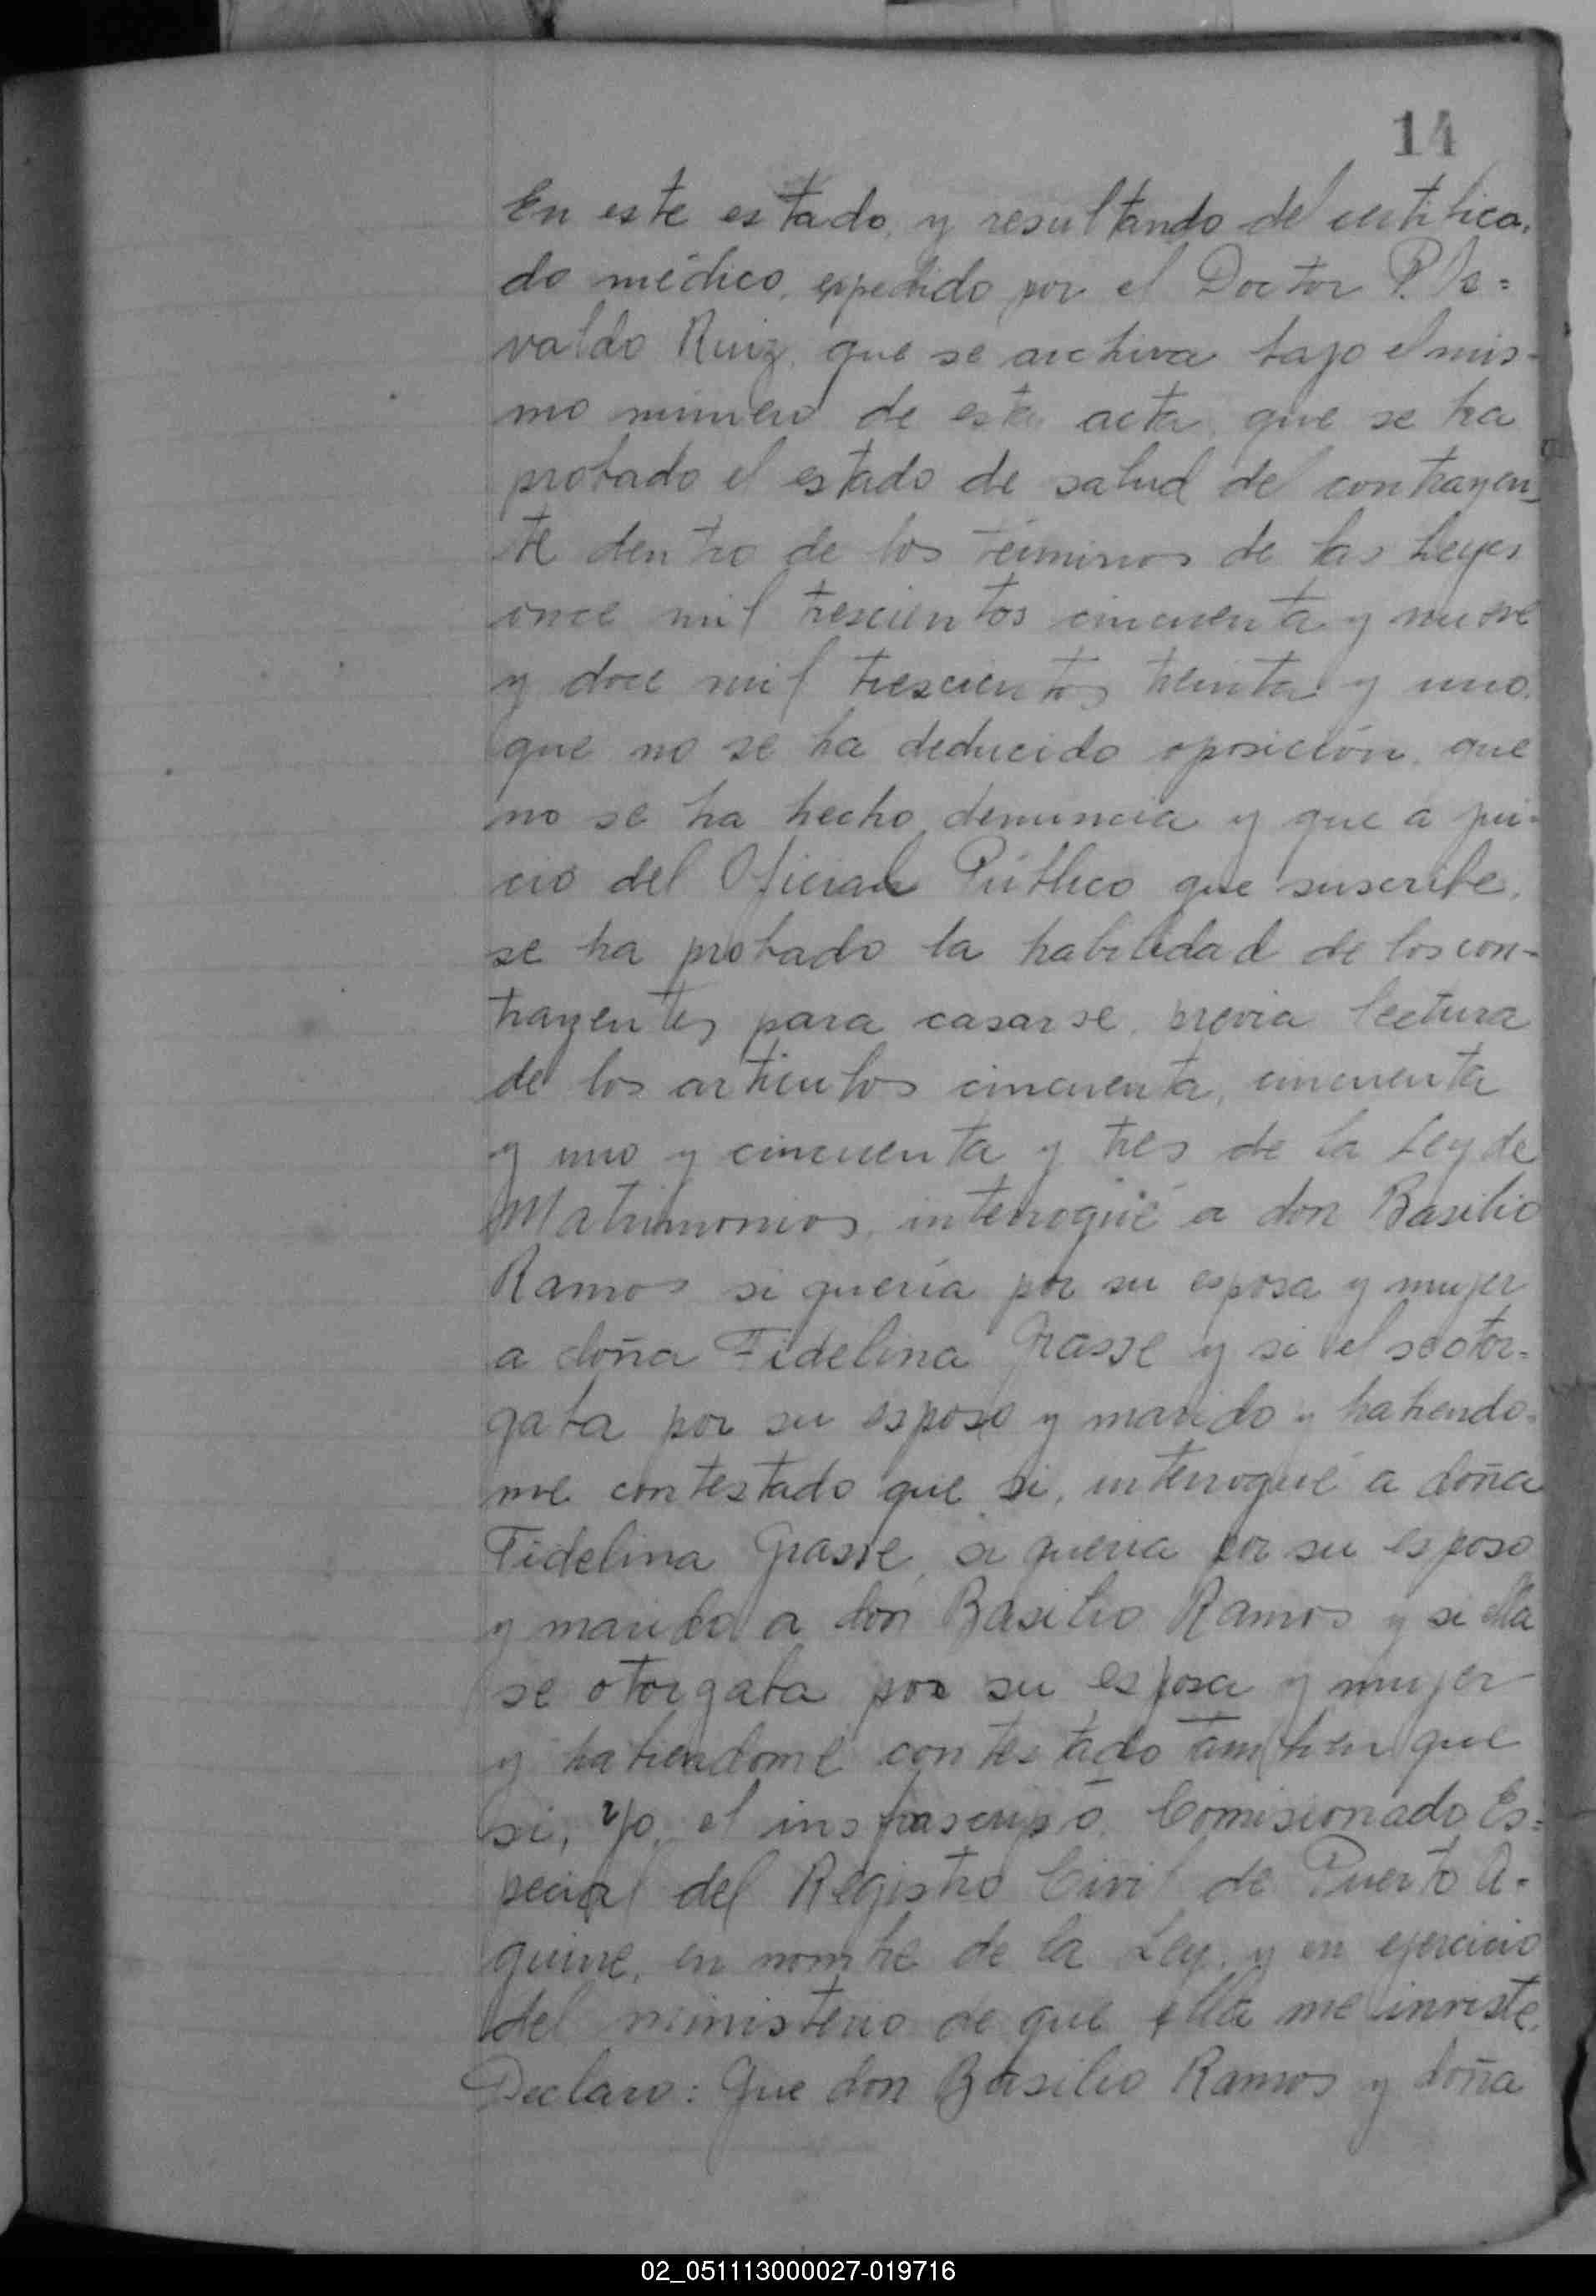 14
En este estado, y resultando del certifica-
do médico, expedido por el Doctor P. Os=
valdo Ruiz, que se archiva bajo el mis-
mo número de esta acta, que se ha
probado el estado de salud del contrayen-
te dentro de los términos de las Leyes
once mil trescientos cincuenta y nueve
y doce mil trescientos treinta y uno,
que no se ha deducido oposición, que
no se ha hecho denuncia y que a jui-
cio del Oficial Público que suscribe,
se ha probado la habilidad de los con-
trayentes para casarse, previa lectura
de los articulos cincuenta, cincuenta
y uno y cincuenta y tres de la Ley de
Matrimonios, interrogué a don Basilio
Ramos si quería por su esposa y mujer
a doña Fidelina Grasse y si el se otor=
gaba por su esposo y marido y habiendo=
me contestado que si, interrogué a doña
Fidelina Grasse, si queria por su esposo
y marido a don Basilio Ramos y si ella
se otorgaba por su esposa y mujer
y habiendome contestado tambien que
si, Yo, el insfrascripto, Comisionado Es=
pecial del Registro Civil de Puerto A=
guirre, en nombre de la Ley, y en ejercicio
del ministerio de que ella me inviste,
Declaro: Que don Basilio Ramos y doña
02_051113000027-019716